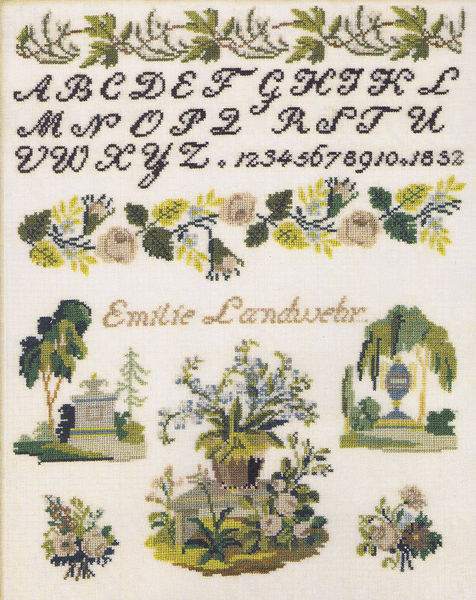 A B C D E F G H I K L
M N O P Q R S T U
V W X Y Z . 12345678910.1832
Emilie Landwehr.